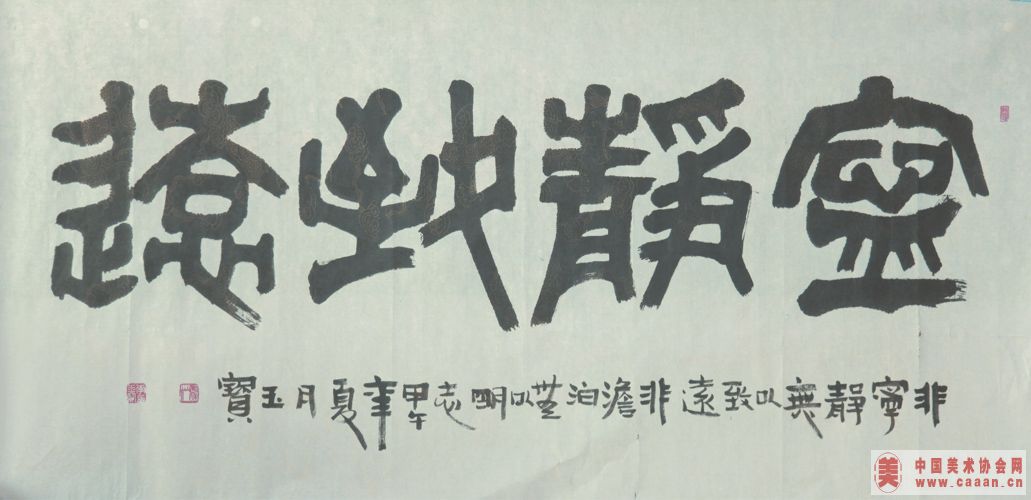 寧靜致遠
非寧靜無以致遠非澹泊無以明志甲午年夏月玉寶
中国美术协会网
www.caaan.cn
美